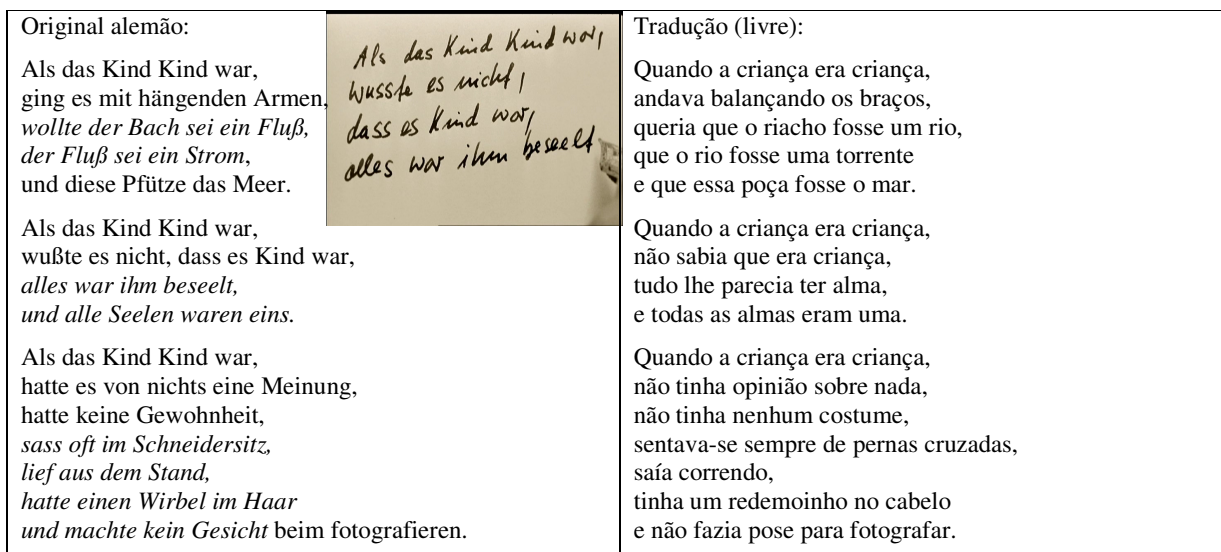 Original alemão:
Als das Kind Kind war,
ging es mit hängenden Armen,
wollte der Bach sei ein Fluß,
der Fluß sei ein Strom,
und diese Pfütze das Meer.
Als das Kind Kind war,
wußte es nicht, dass es Kind war,
alles war ihm beseelt,
und alle Seelen waren eins.
Als das Kind Kind war,
hatte es von nichts eine Meinung,
hatte keine Gewohnheit,
sass oft im Schneidersitz,
lief aus dem Stand,
hatte einen Wirbel im Haar
und machte kein Gesicht beim fotografieren.
Als das Kind Kind war,
wusste es nicht,
dass es Kind war,
alles war ihm beseelt
Tradução (livre):
Quando a criança era criança,
andava balançando os braços,
queria que o riacho fosse um rio,
que o rio fosse uma torrente
e que essa poça fosse o mar.
Quando a criança era criança,
não sabia que era criança,
tudo lhe parecia ter alma,
e todas as almas eram uma.
Quando a criança era criança,
não tinha opinião sobre nada,
não tinha nenhum costume,
sentava-se sempre de pernas cruzadas,
saía correndo,
tinha um redemoinho no cabelo
e não fazia pose para fotografar.